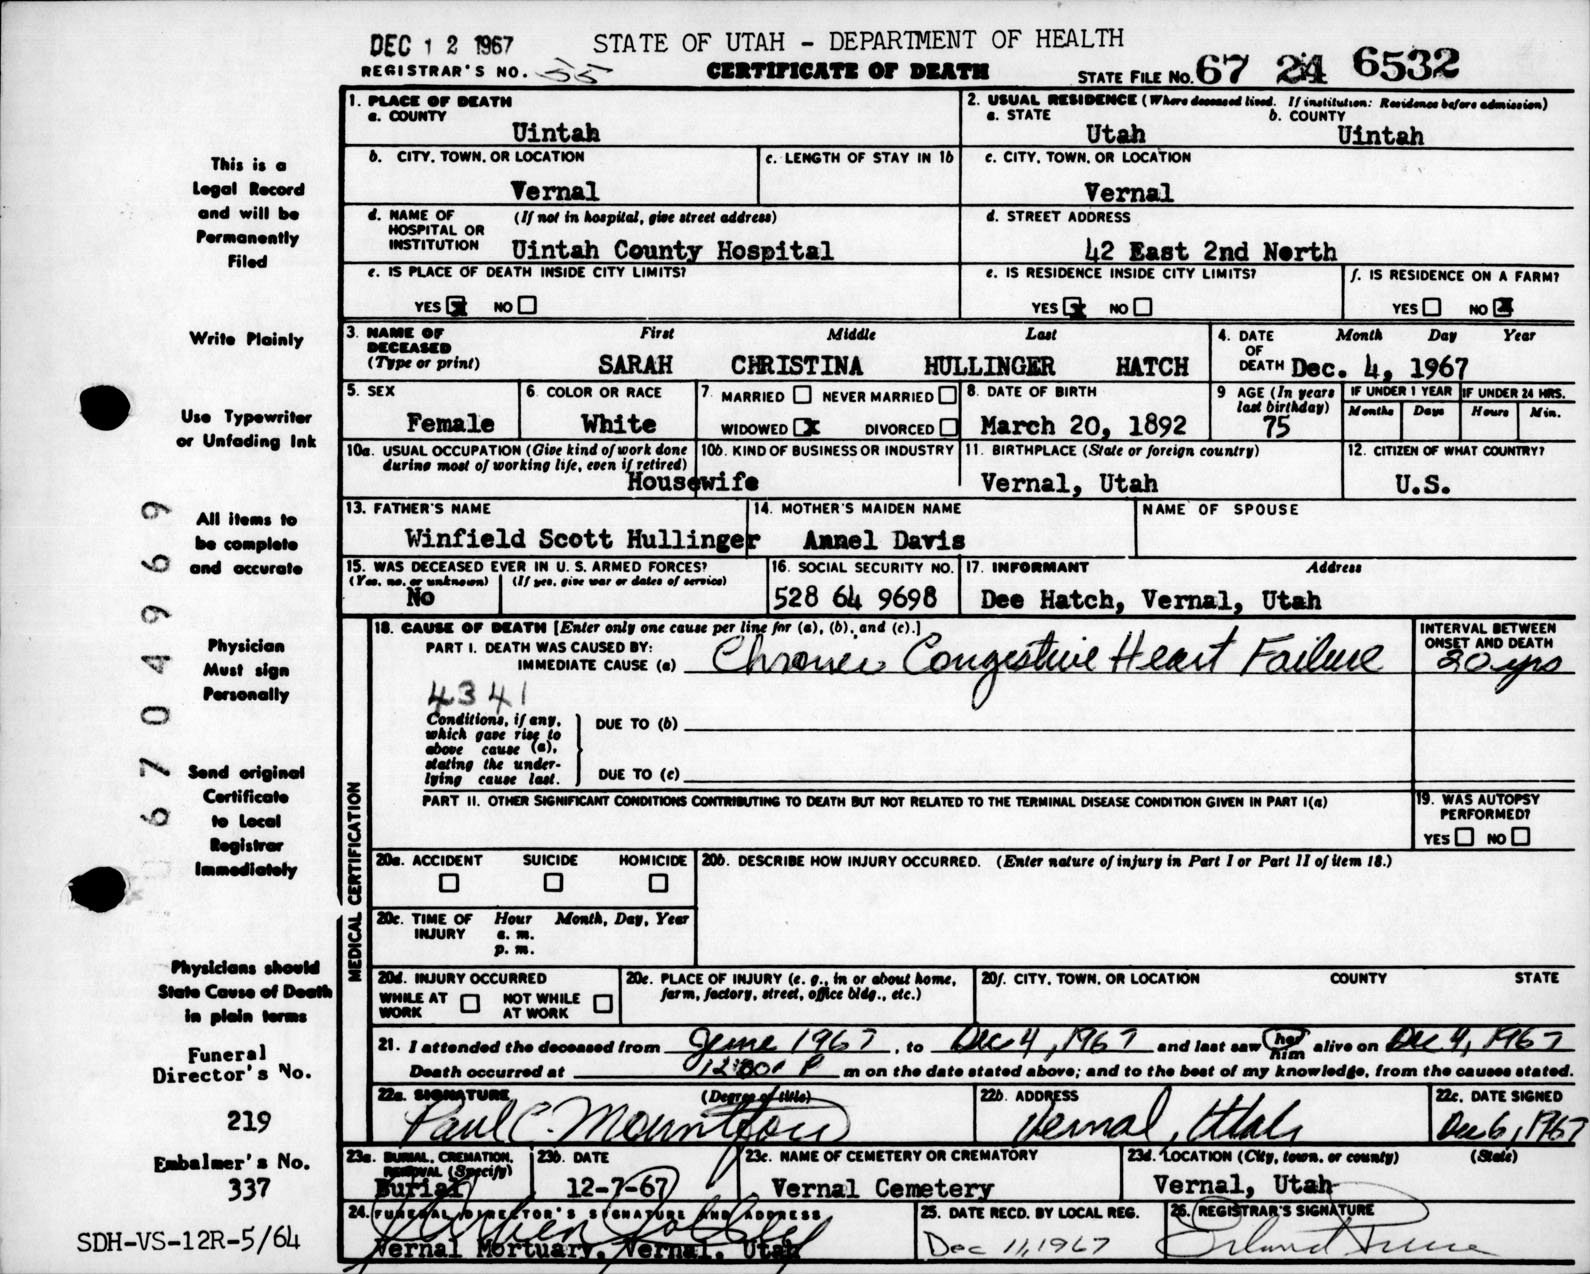 DEC 12 1967 STATE OF UTAH - DEPARTMENT OF HEALTH
REGISTRAR'S NO. 55 CERTIFICATE OF DEATH STATE FILE NO. 67 24 6532
1. PLACE OF DEATH
a. COUNTY
Uintah
2. USUAL RESIDENCE (Where deceased lived. If institution: Residence before admission)
a. STATE b. COUNTY
Utah Uintah
b. CITY, TOWN, OR LOCATION
Vernal
c. LENGTH OF STAY IN 1b
c. CITY, TOWN, OR LOCATION
Vernal
d. NAME OF HOSPITAL OR INSTITUTION (If not in hospital, give street address)
Uintah County Hospital
d. STREET ADDRESS
42 East 2nd North
e. IS PLACE OF DEATH INSIDE CITY LIMITS?
YES x NO
e. IS RESIDENCE INSIDE CITY LIMITS?
YES x NO
f. IS RESIDENCE ON A FARM?
YES NO x
3. NAME OF DECEASED (Type or print)
First Middle Last
SARAH CHRISTINA HULLINGER HATCH
4. DATE OF DEATH
Month Day Year
Dec. 4, 1967
5. SEX
Female
6. COLOR OR RACE
White
7. MARRIED NEVER MARRIED
WIDOWED x DIVORCED
8. DATE OF BIRTH
March 20, 1892
9 AGE (In years last birthday)
75
IF UNDER 1 YEAR
Months Days
IF UNDER 24 HRS.
Hours Min.
10a. USUAL OCCUPATION (Give kind of work done
during most of working life, even if retired)
Housewife
10b. KIND OF BUSINESS OR INDUSTRY
11. BIRTHPLACE (State or foreign country)
Vernal, Utah
12. CITIZEN OF WHAT COUNTRY?
U.S.
13. FATHER'S NAME
Winfield Scott Hullinger
14. MOTHER'S MAIDEN NAME
Annel Davis
NAME OF SPOUSE
15. WAS DECEASED EVER IN U.S. ARMED FORCES?
(Yes, no, or unknown) (If yes, give war or dates of service)
No
16. SOCIAL SECURITY NO.
528 64 9698
17. INFORMANT Address
Dee Hatch, Vernal, Utah
MEDICAL CERTIFICATION
18. CAUSE OF DEATH [Enter only one cause per line for (a), (b), and (c).]
PART I. DEATH WAS CAUSED BY:
IMMEDIATE CAUSE (a) Chronic Congestive Heart Failure
INTERVAL BETWEEN
ONSET AND DEATH
20 yrs
4341
Conditions, if any,
which gave rise to
above cause (a),
stating the under-
lying cause last.
DUE TO (b)
DUE TO (c)
PART II. OTHER SIGNIFICANT CONDITIONS CONTRIBUTING TO DEATH BUT NOT RELATED TO THE TERMINAL DISEASE CONDITION GIVEN IN PART I(a)
19. WAS AUTOPSY
PERFORMED?
YES NO
20a. ACCIDENT SUICIDE HOMICIDE
20b. DESCRIBE HOW INJURY OCCURRED. (Enter nature of injury in Part I or Part II of item 18.)
20c. TIME OF INJURY Hour Month, Day, Year
a. m.
p. m.
20d. INJURY OCCURRED
WHILE AT WORK NOT WHILE AT WORK
20e. PLACE OF INJURY (e. g., in or about home,
farm, factory, street, office bldg., etc.)
20f. CITY, TOWN, OR LOCATION COUNTY STATE
21. I attended the deceased from June 1967, to Dec 4, 1967 and last saw her him alive on Dec 4, 1967
Death occurred at P m on the date stated above; and to the best of my knowledge, from the causes stated.
22a. SIGNATURE (Degree or title)
Paul C.
22b. ADDRESS
Vernal, Utah
22c. DATE SIGNED
Dec 6, 1967
23a. BURIAL, CREMATION, REMOVAL (Specify)
Burial
23b. DATE
12-7-67
23c. NAME OF CEMETERY OR CREMATORY
Vernal Cemetery
23d. LOCATION (City, town, or county) (State)
Vernal, Utah
24. FUNERAL DIRECTOR'S SIGNATURE AND ADDRESS
Vernal Mortuary, Vernal, Utah
25. DATE RECD. BY LOCAL REG.
Dec 11, 1967
26. REGISTRAR'S SIGNATURE
This is a
Legal Record
and will be
Permanently
Filed
Write Plainly
Use Typewriter
or Unfading Ink
All items to
be complete
and accurate
Physician
Must sign
Personally
Send original
Certificate
to Local
Registrar
Immediately
Physicians should
State Cause of Death
in plain terms
Funeral
Director's No.
219
Embalmer's No.
337
SDH-VS-12R-5/64
67 04969